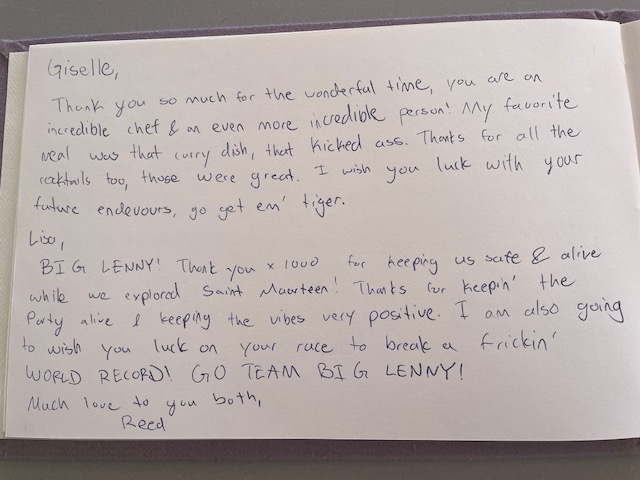 Giselle,
Thank you so much for the wonderful time, you are an
incredible chef & an even more incredible person! My favorite
meal was that curry dish, that kicked ass. Thanks for all the
cocktails too, those were great. I wish you luck with your
future endevours, go get em' tiger.
Lisa,
BIG LENNY! Thank you x 1000 for keeping us safe & alive
while we explored Saint Maarteen! Thanks for keepin' the
Party alive & keeping the vibes very positive. I am also going
to wish you luck on your race to break a frickin'
WORLD RECORD! GO TEAM BIG LENNY!
Much love to you both,
Reed